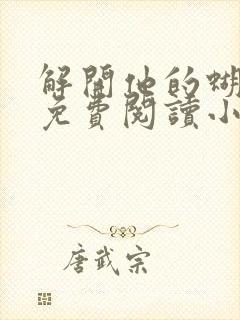 解開他的蝴
免費閱讀小
唐武宗